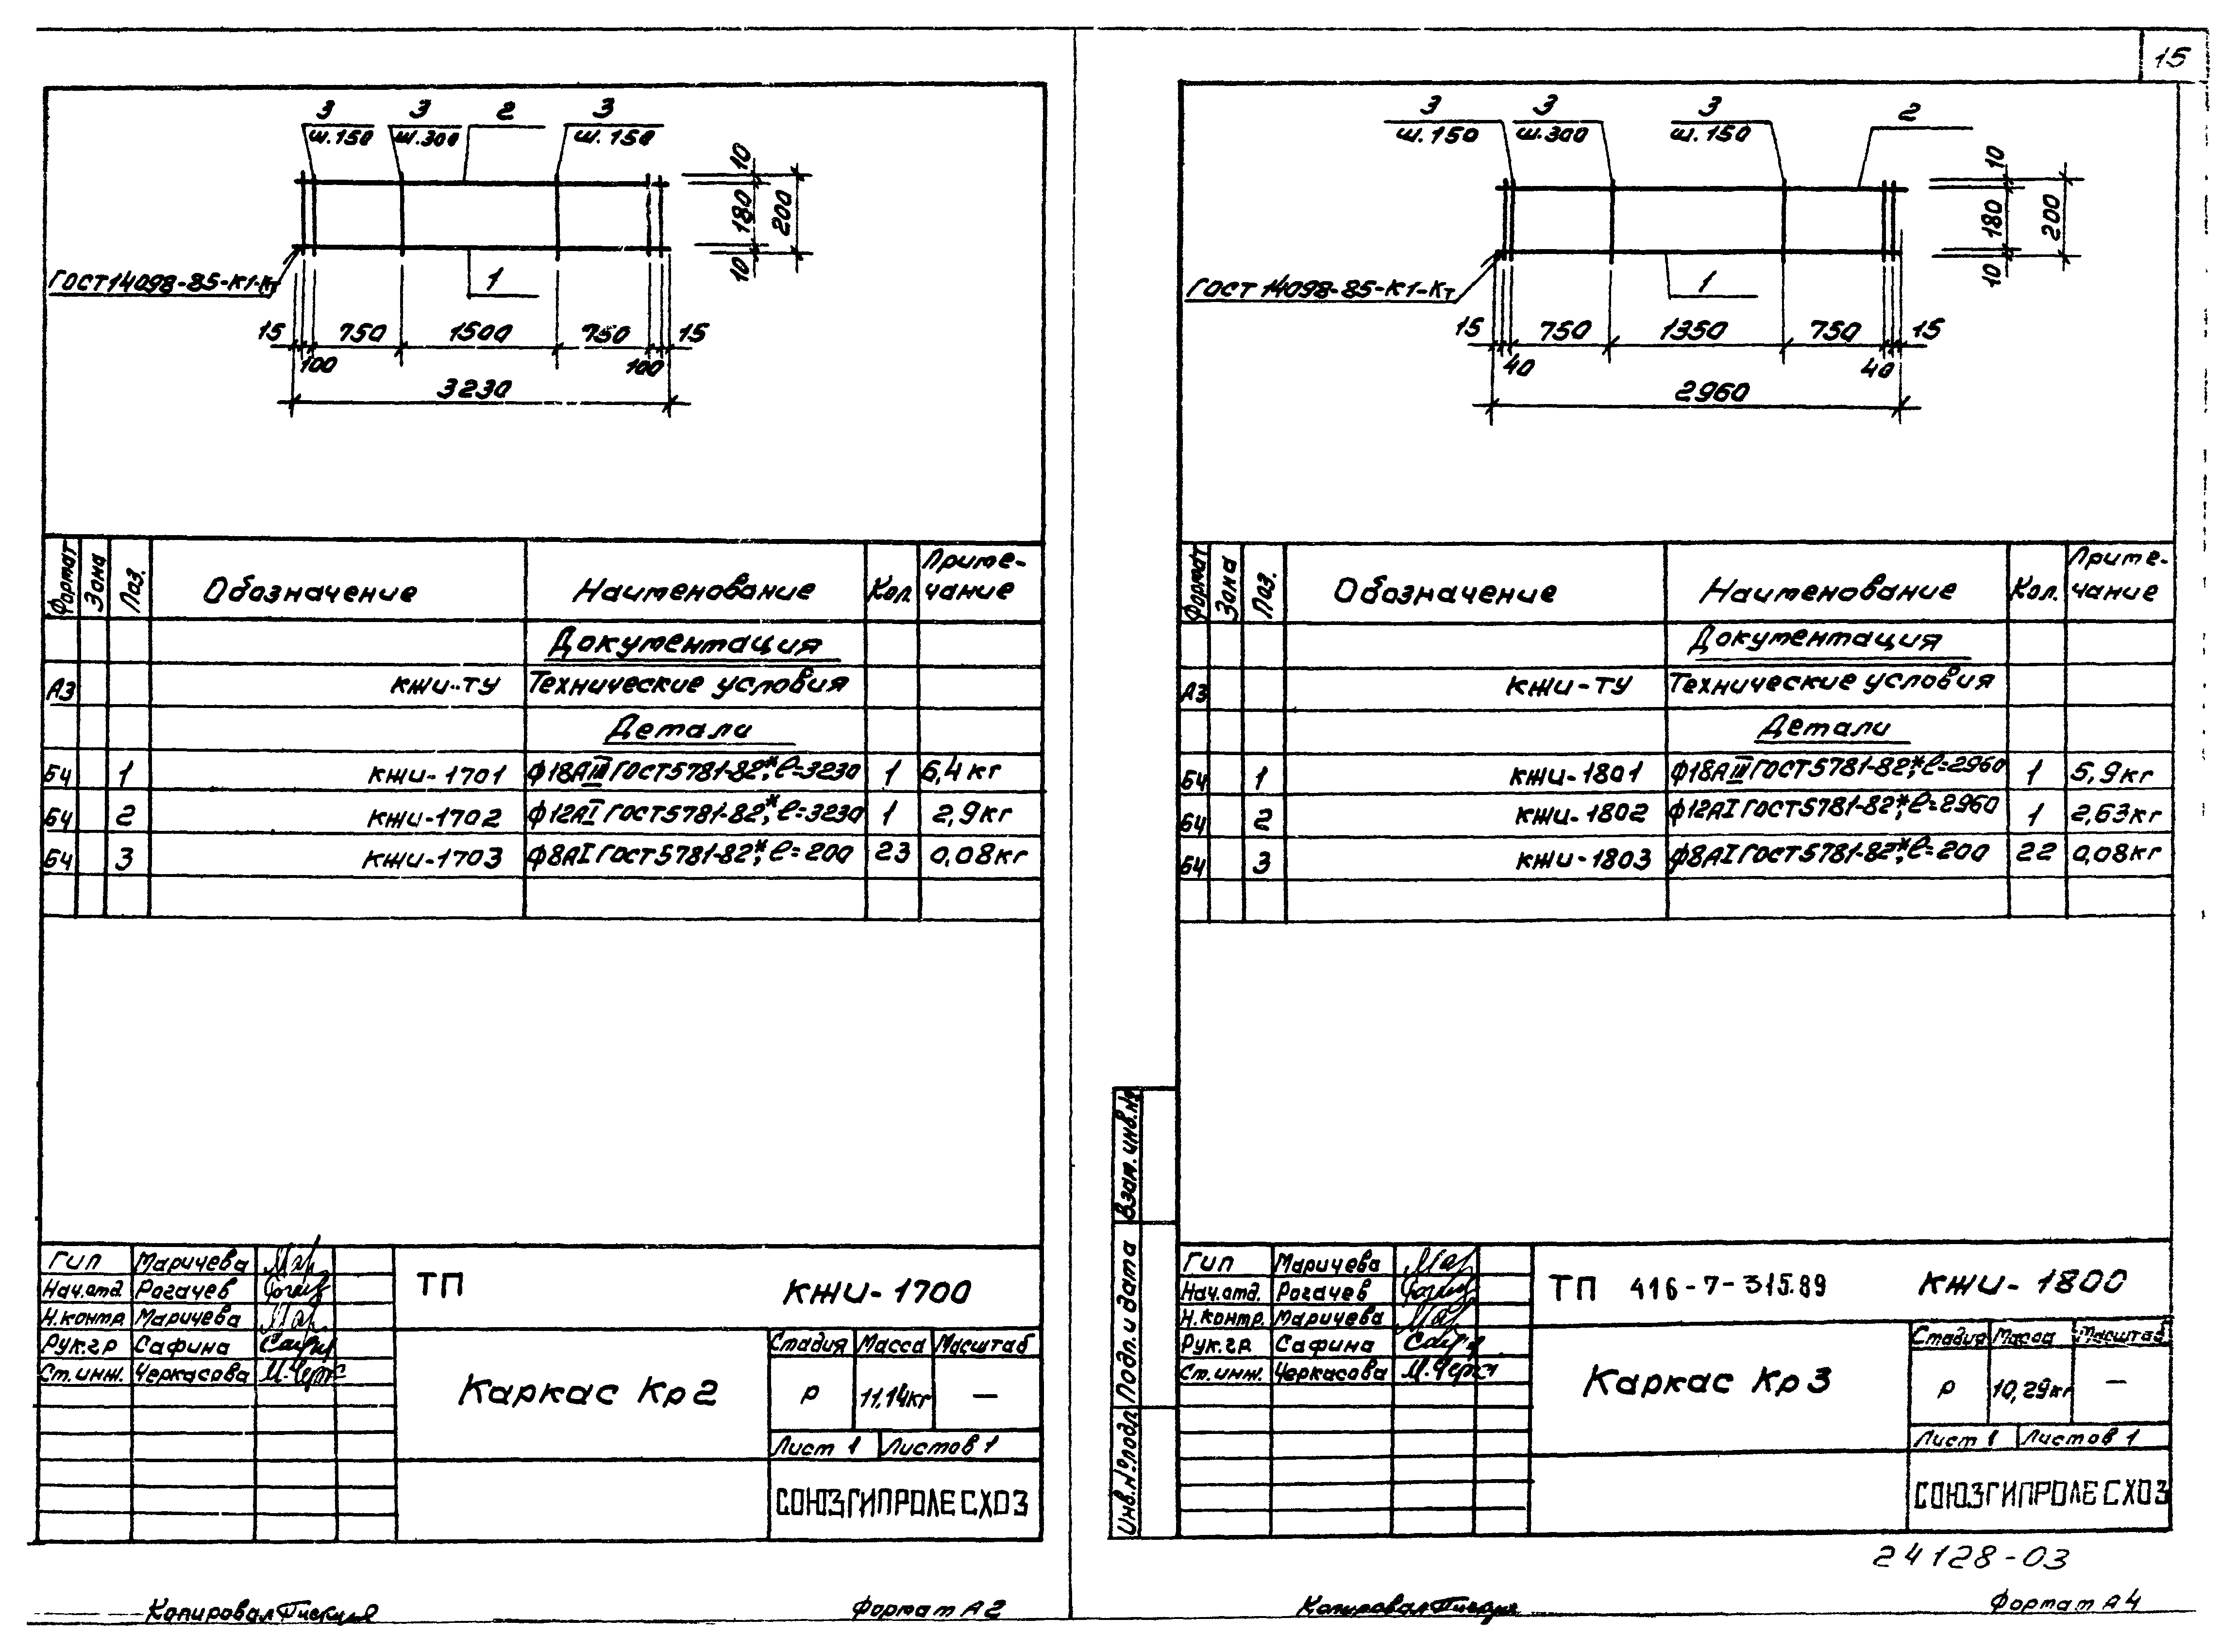 15
3 3 2 3
ш.150 ш.300 ш.150
10
180
200
10
ГОСТ 14098-85-К1-Кт
1
15 750 1500 750 15
100 100
3230
Формат Зона Поз. Обозначение Наименование Кол. Приме-
чание
Документация
А3 КЖИ-ТУ Технические условия
Детали
БЧ 1 КЖИ-1701 ф18АIII ГОСТ5781-82*, ℓ=3230 1 6,4кг
БЧ 2 КЖИ-1702 ф12АI ГОСТ5781-82*, ℓ=3230 1 2,9кг
БЧ 3 КЖИ-1703 ф8АI ГОСТ5781-82*, ℓ=200 23 0,08кг
ГИП Маричева
Нач.отд. Рогачев
Н.контр. Маричева
Рук.гр Сафина
Ст.инж. Черкасова
ТП КЖИ-1700
Каркас Кр2
Стадия Масса Масштаб
Р 11,14кг —
Лист 1 Листов 1
СОЮЗГИПРОЛЕСХОЗ
Копировал
Формат А2
3 3 3 2
ш.150 ш.300 ш.150
10
180
200
10
ГОСТ 14098-85-К1-Кт
1
15 750 1350 750 15
40 40
2960
Формат Зона Поз. Обозначение Наименование Кол. Приме-
чание
Документация
А3 КЖИ-ТУ Технические условия
Детали
БЧ 1 КЖИ-1801 ф18АIII ГОСТ5781-82*, ℓ=2960 1 5,9кг
БЧ 2 КЖИ-1802 ф12АI ГОСТ5781-82*, ℓ=2960 1 2,63кг
БЧ 3 КЖИ-1803 ф8АI ГОСТ5781-82*, ℓ=200 22 0,08кг
Взам. инв.№
Подп. и дата
Инв.№ подл.
ГИП Маричева
Нач.отд. Рогачев
Н.контр. Маричева
Рук.гр Сафина
Ст.инж. Черкасова
ТП 416-7-315.89 КЖИ-1800
Каркас Кр3
Стадия Масса Масштаб
Р 10,29кг —
Лист 1 Листов 1
СОЮЗГИПРОЛЕСХОЗ
24128-03
Копировал
Формат А4